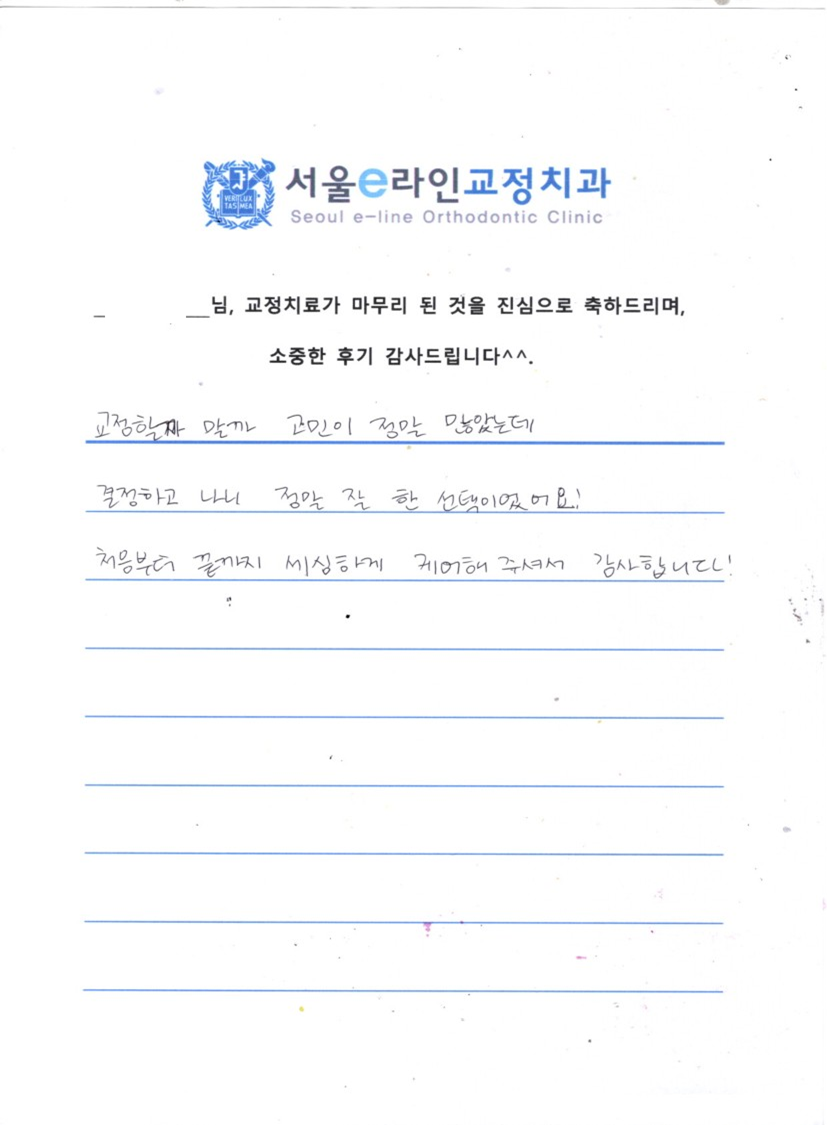 VERI LUX
TAS MEA
서울e라인교정치과
Seoul e-line Orthodontic Clinic
_ __님, 교정치료가 마무리 된 것을 진심으로 축하드리며,
소중한 후기 감사드립니다^^.
교정할까 말까 고민이 정말 많았는데
결정하고 나니 정말 잘 한 선택이었어요!
처음부터 끝까지 세심하게 케어해 주셔서 감사합니다!